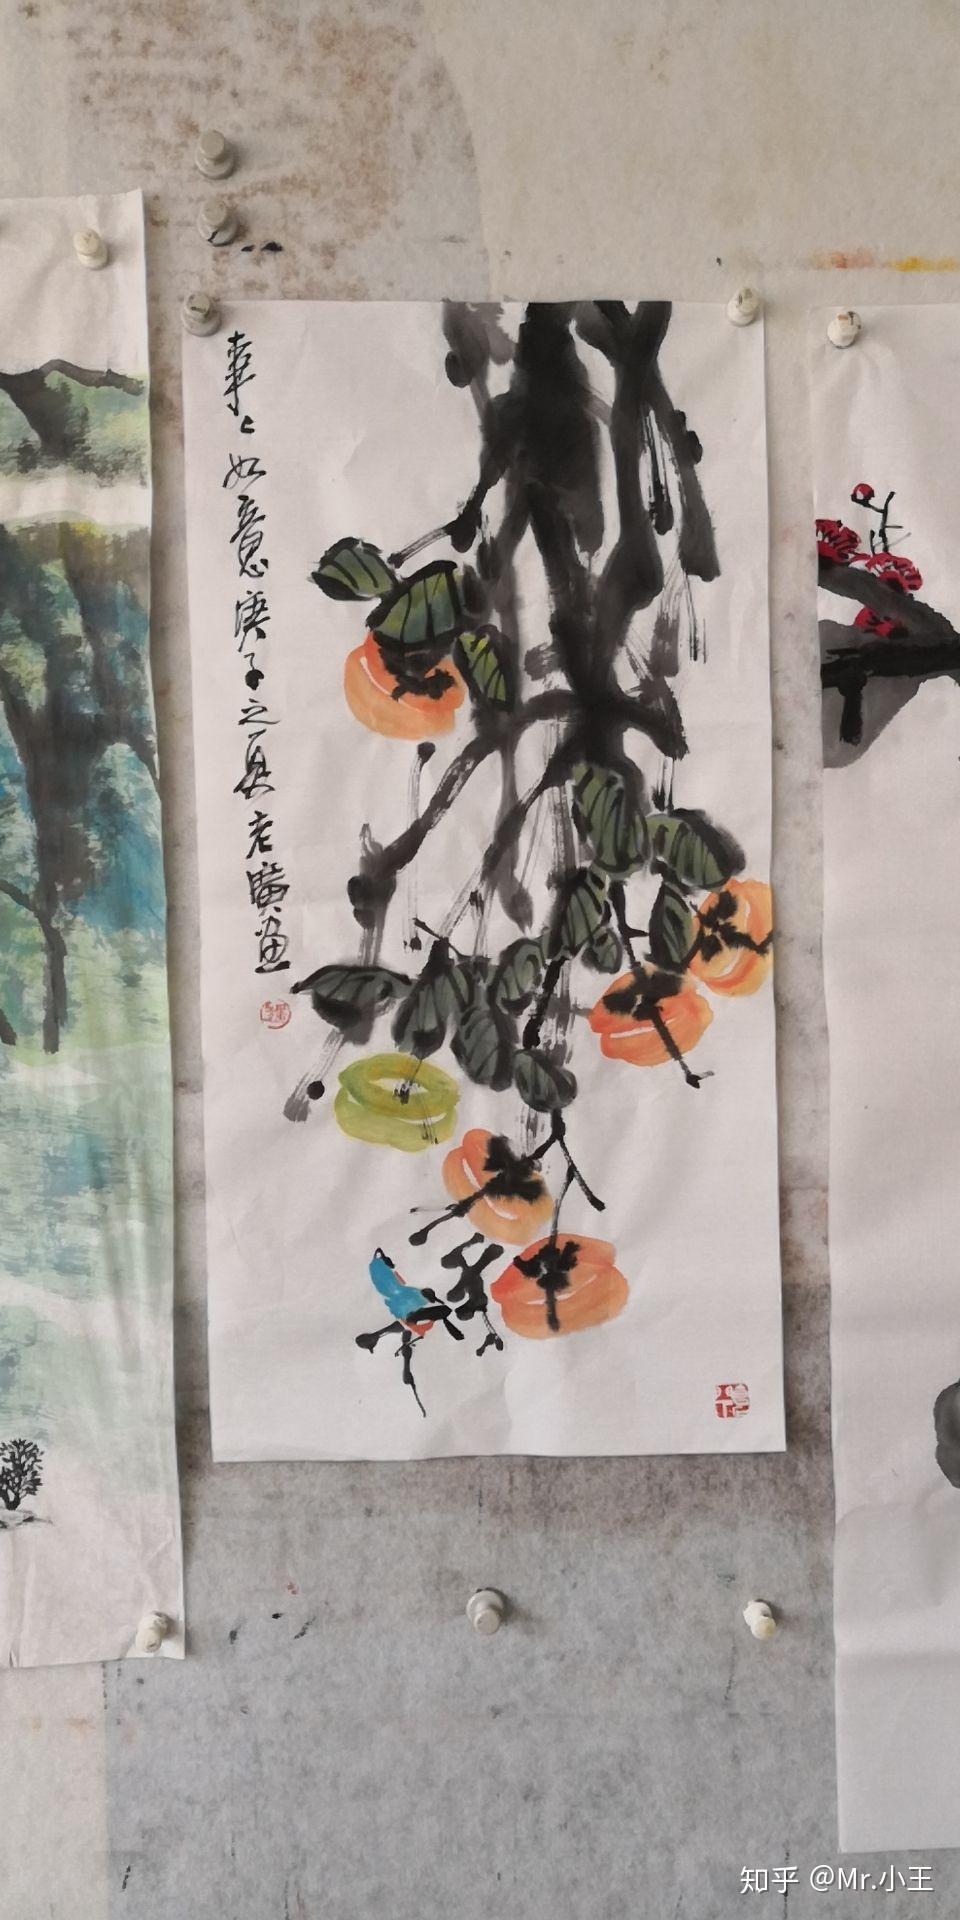 事々如意庚子之夏老廣畫
知乎 @Mr.小王